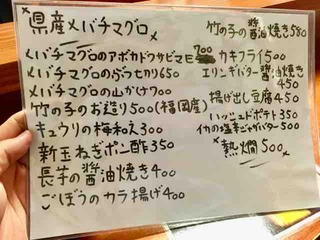 県産メバチマグロ
メバチマグロのアボカドワサビマヨ700
メバチマグロのぶつ切り650
メバチマグロの山かけ700
竹の子のお造り500(福岡産)
キュウリの梅和え300
新玉ねぎポン酢350
長芋の醤油焼き400
ごぼうのカラ揚げ400
竹の子の醤油焼き580
カキフライ500
エリンギバター醤油焼き
450
揚げ出し豆腐450
ハッシュドポテト350
イカの塩辛じゃがバター500
熱燗500